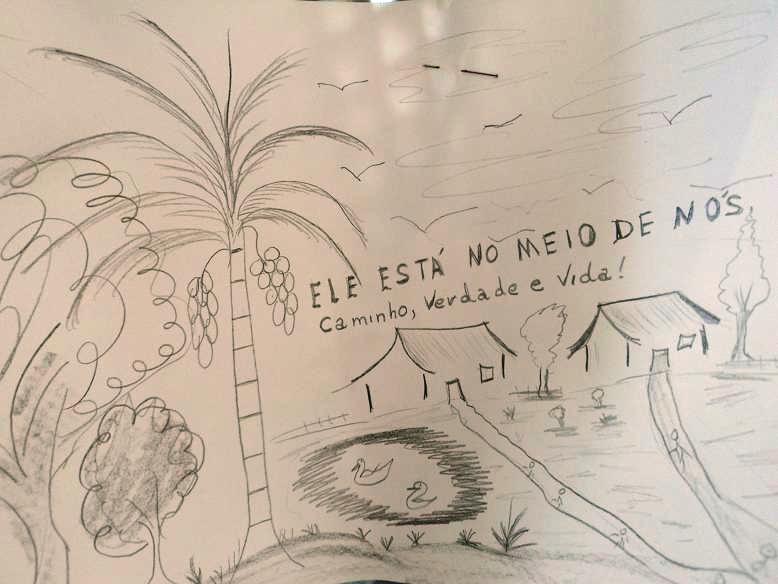 ELE ESTÁ NO MEIO DE NÓS,
Caminho, Verdade e Vida!